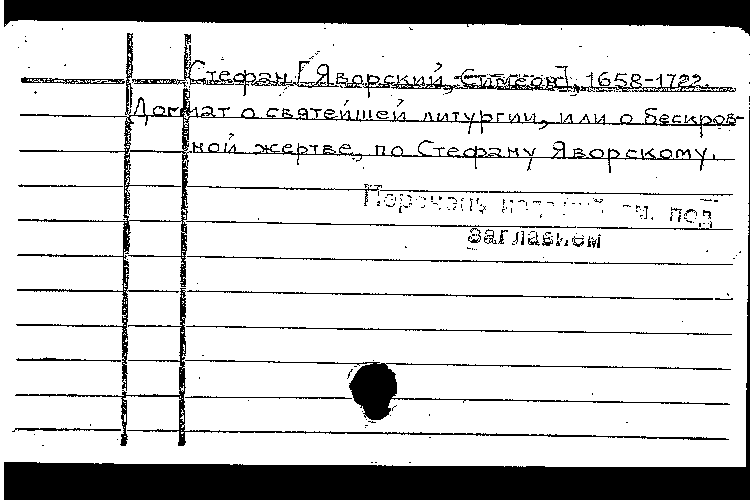 Стефан [Яворский, Симеон], 1658-1722.
Догмат о святейшей литургии, или о бескров-
ной жертве, по Стефану Яворскому.
Перечень изданий см. под
заглавием